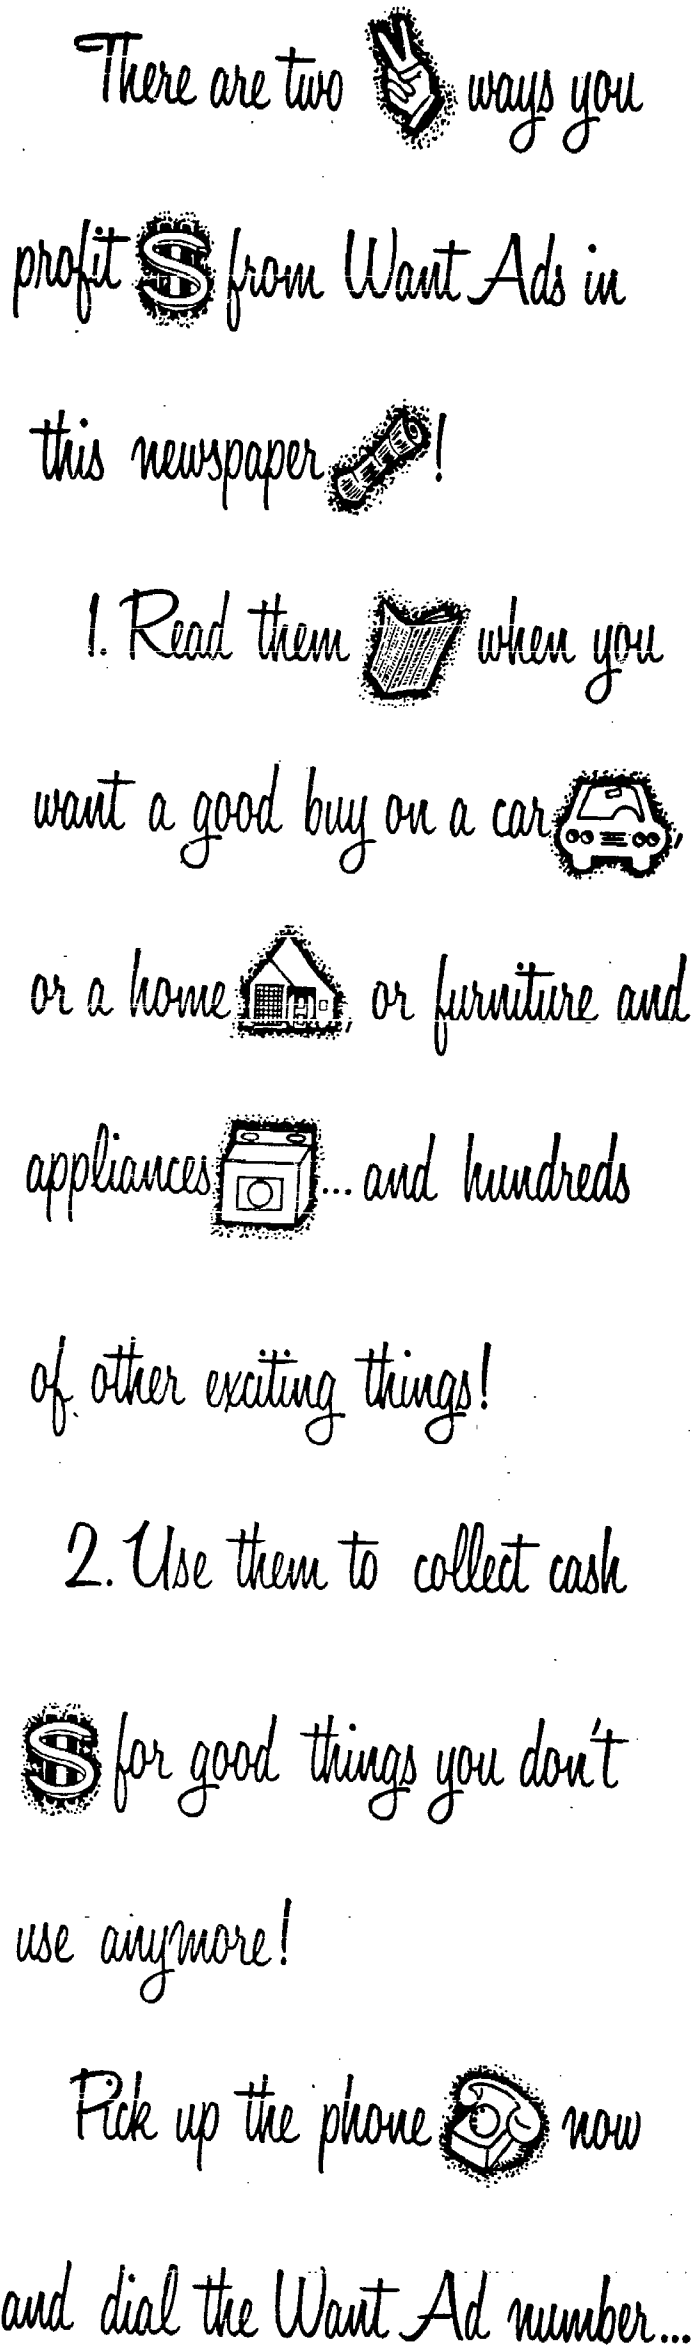 There are two ways you
profit $ from Want Ads in
this newspaper !
1. Read them when you
want a good buy on a car,
or a home, or furniture and
appliances ... and hundreds
of other exciting things!
2. Use them to collect cash
$ for good things you don't
use anymore!
Pick up the phone now
and dial the Want Ad number...